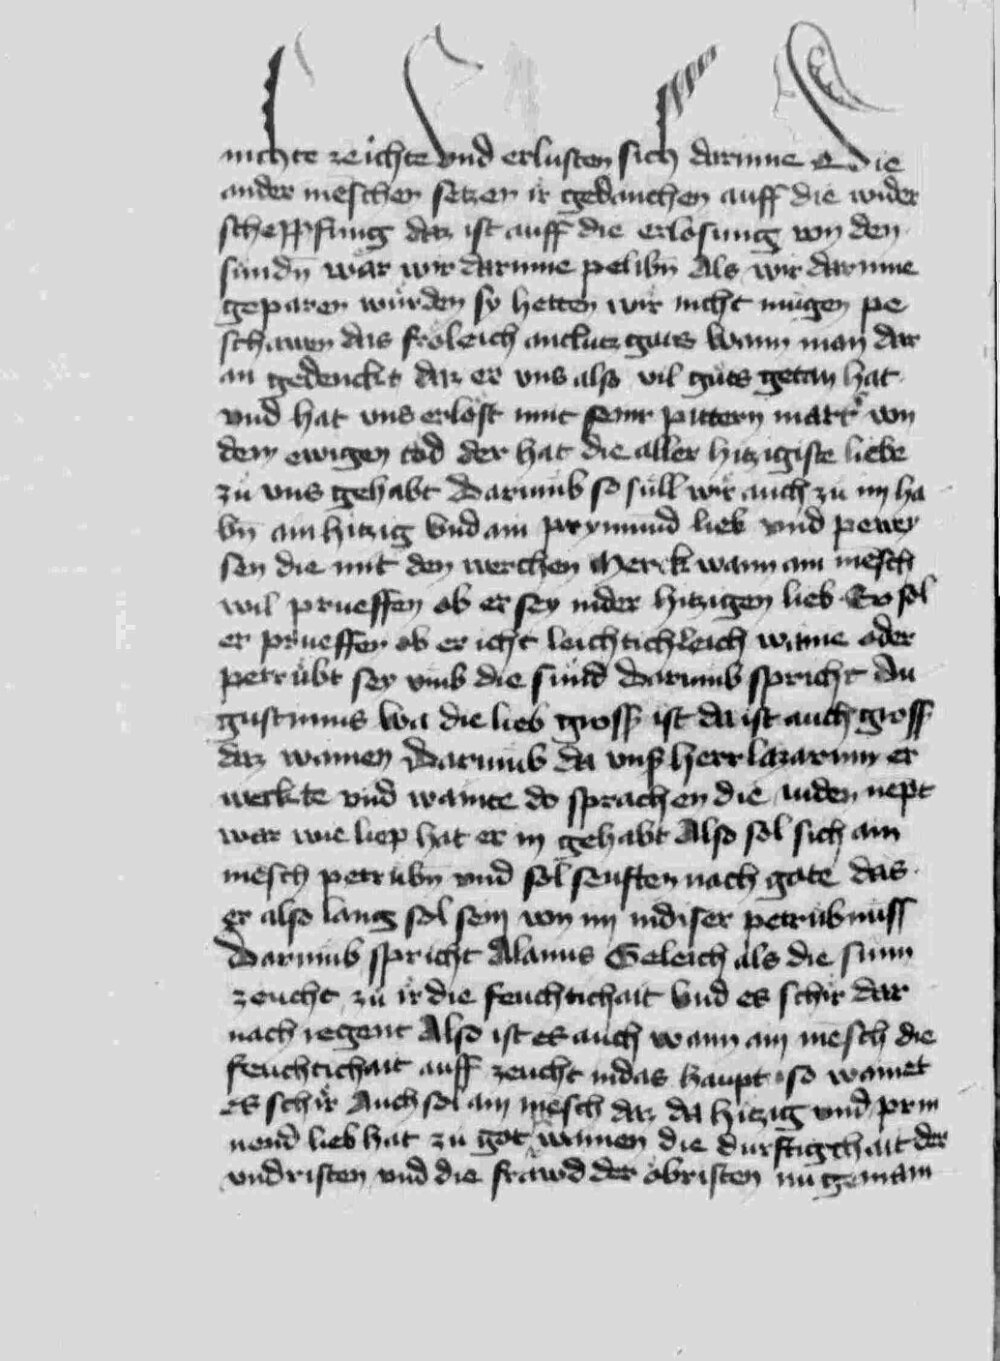 nichte zeichte vnd erlusten sich darinne Die
ander menschen setzen ir gedanchen auff die wider
scheppfung daz ist auff die erlosung von den
sundn war wir darinne pelibn Als wir darinne
geparen wurden sy hetten wir nicht mugen pe
schawen das froleich antlutz gots Wann man dar
an gedenckt daz er vns also vil guts getan hat
vnd hat vns erlost mit seinr pittern martr von
dem ewigen tod der hat die aller hitzigiste liebe
zu vns gehabt Darumb so sull wir auch zu im ha
bn ain hitzig vnd ain prynnund lieb vnd pewey
sen die mit den werchen Merck wann ain mesch
wil prueffen ob er sey inder hitzigen lieb So sol
er prueffen ob er icht leichtichleich waine oder
petrubt sey vmb die sund Darumb spricht Au
gustinus Wa die lieb gross ist da ist auch gross
daz wainen Darumb da vnser herr lazarum er
weckte vnd wainte do sprachen die iuden nept
war wie liep hat er in gehabt Also sol sich ain
mesch petrubn vnd sol senfften nach gote das
er also lang sol sein von im indiser petrubnuss
Darumb spricht Alanus Geleich als die sunn
zeucht zu ir die feuchtichait vnd es schir dar
nach regent Also ist es auch wann ain mesch die
feuchtichait auff zeucht indas haupt so wainet
es schir Auch sol ain mesch daz da hitzig vnd prin
nend lieb hat zu got wainen die durftigchait der
vndristen vnd die frawd der obristen nu gemain